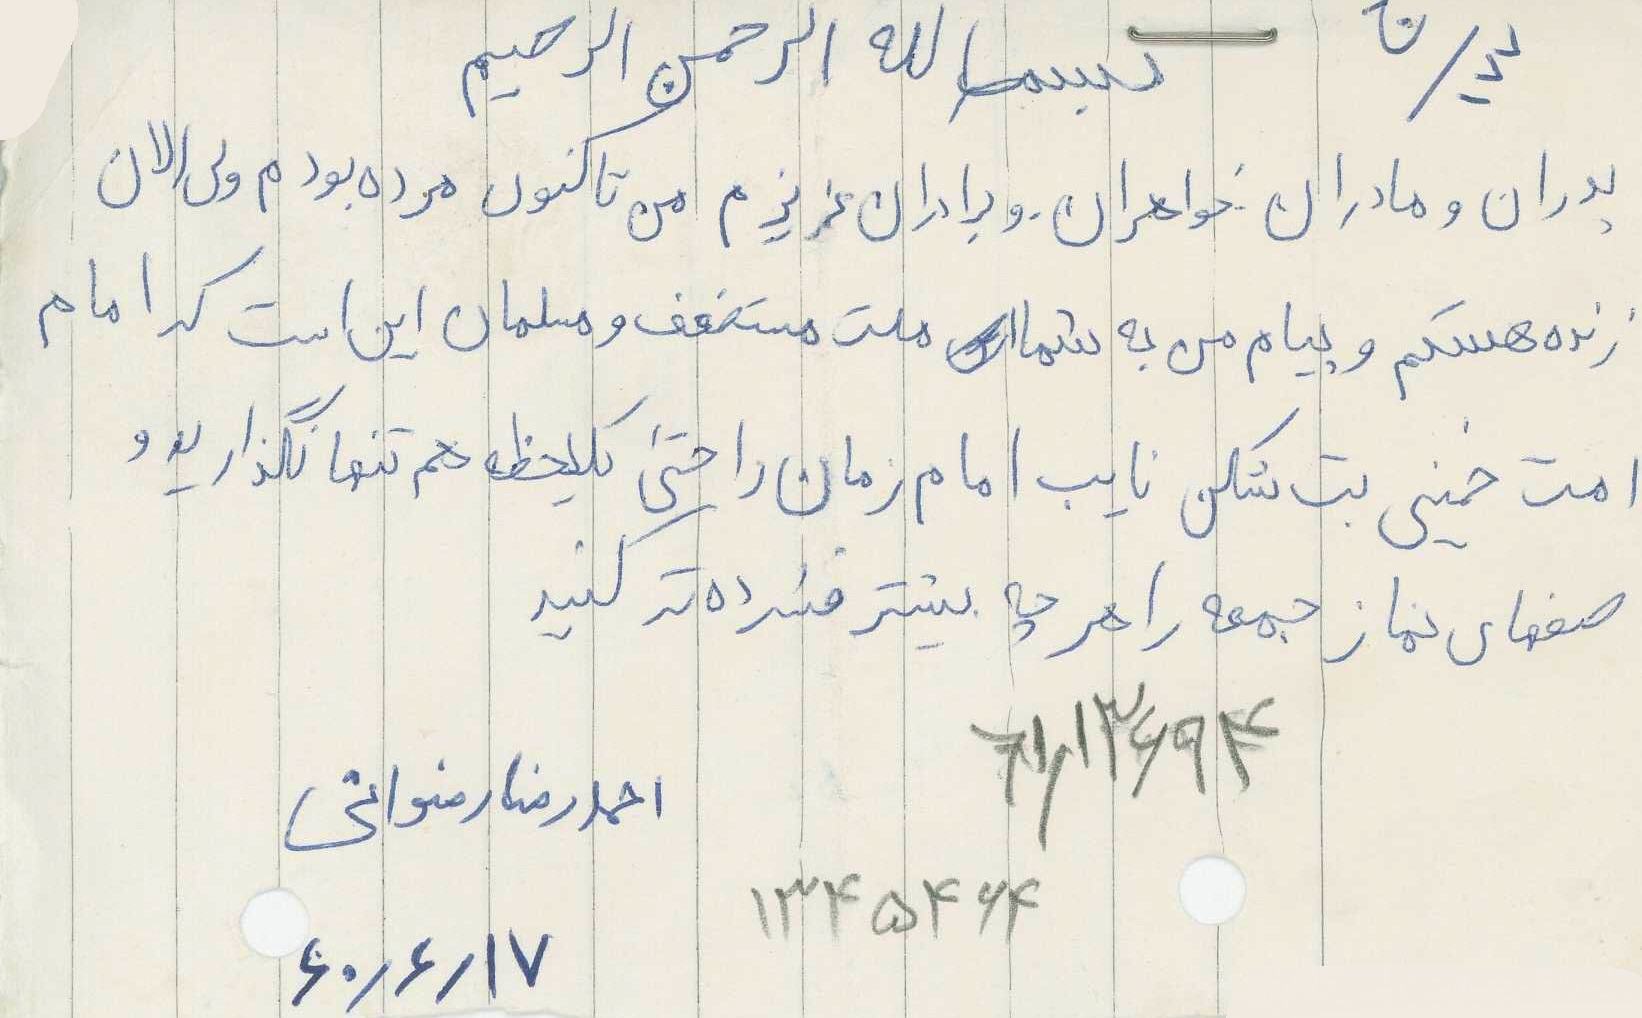 بسم الله الرحمن الرحیم
پدران و مادران خواهران و برادران عزیزم من تاکنون مرده بودم ولی الان
زنده هستم و پیام من به شما ملت مستضعف و مسلمان این است که امام
امت خمینی بت شکن نایب امام زمان را حتی یکلحظه هم تنها نگذارید و
صفهای نماز جمعه را هر چه بیشتر فشرده تر کنید
۱۳۶۹۴
احمدرضا رضوانی
۱۳۴۵۴۶۴
۶۰/۶/۱۷